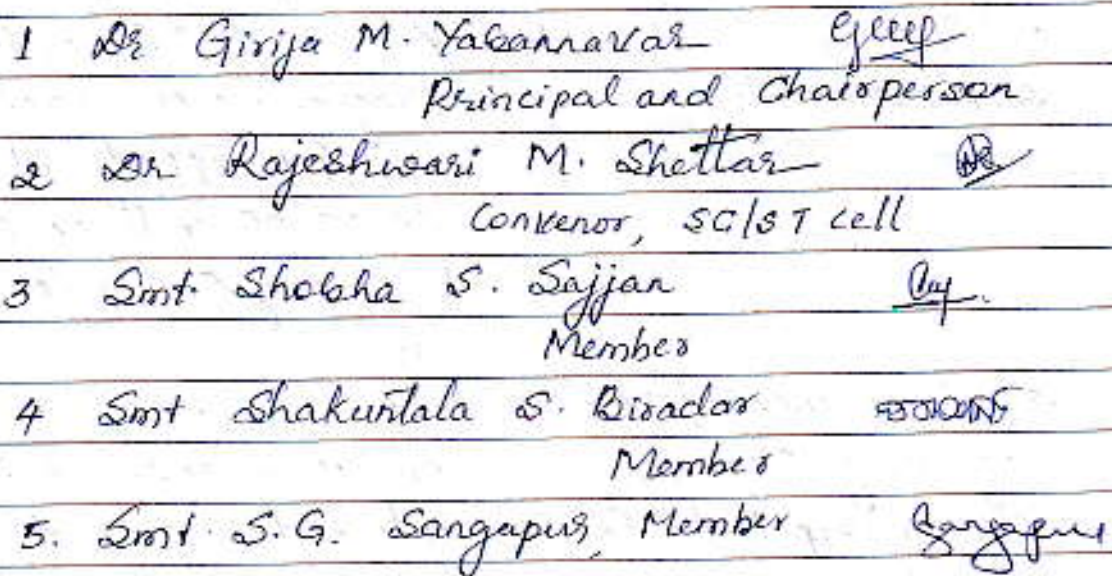 1 Dr Girija M. Yabannavar
Principal and Chairperson
2 Dr Rajeshwari M. Shettar
Convenor, SC/ST Cell
3 Smt. Shobha S. Sajjan
Member
4 Smt Shakuntala S. Biradar
Member
5. Smt. S.G. Sangapur, Member Sangapur